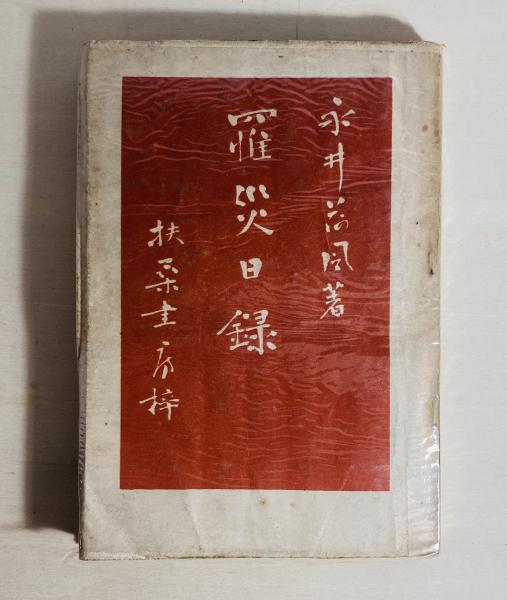 永井荷风著
罹災日録
扶桑書房梓